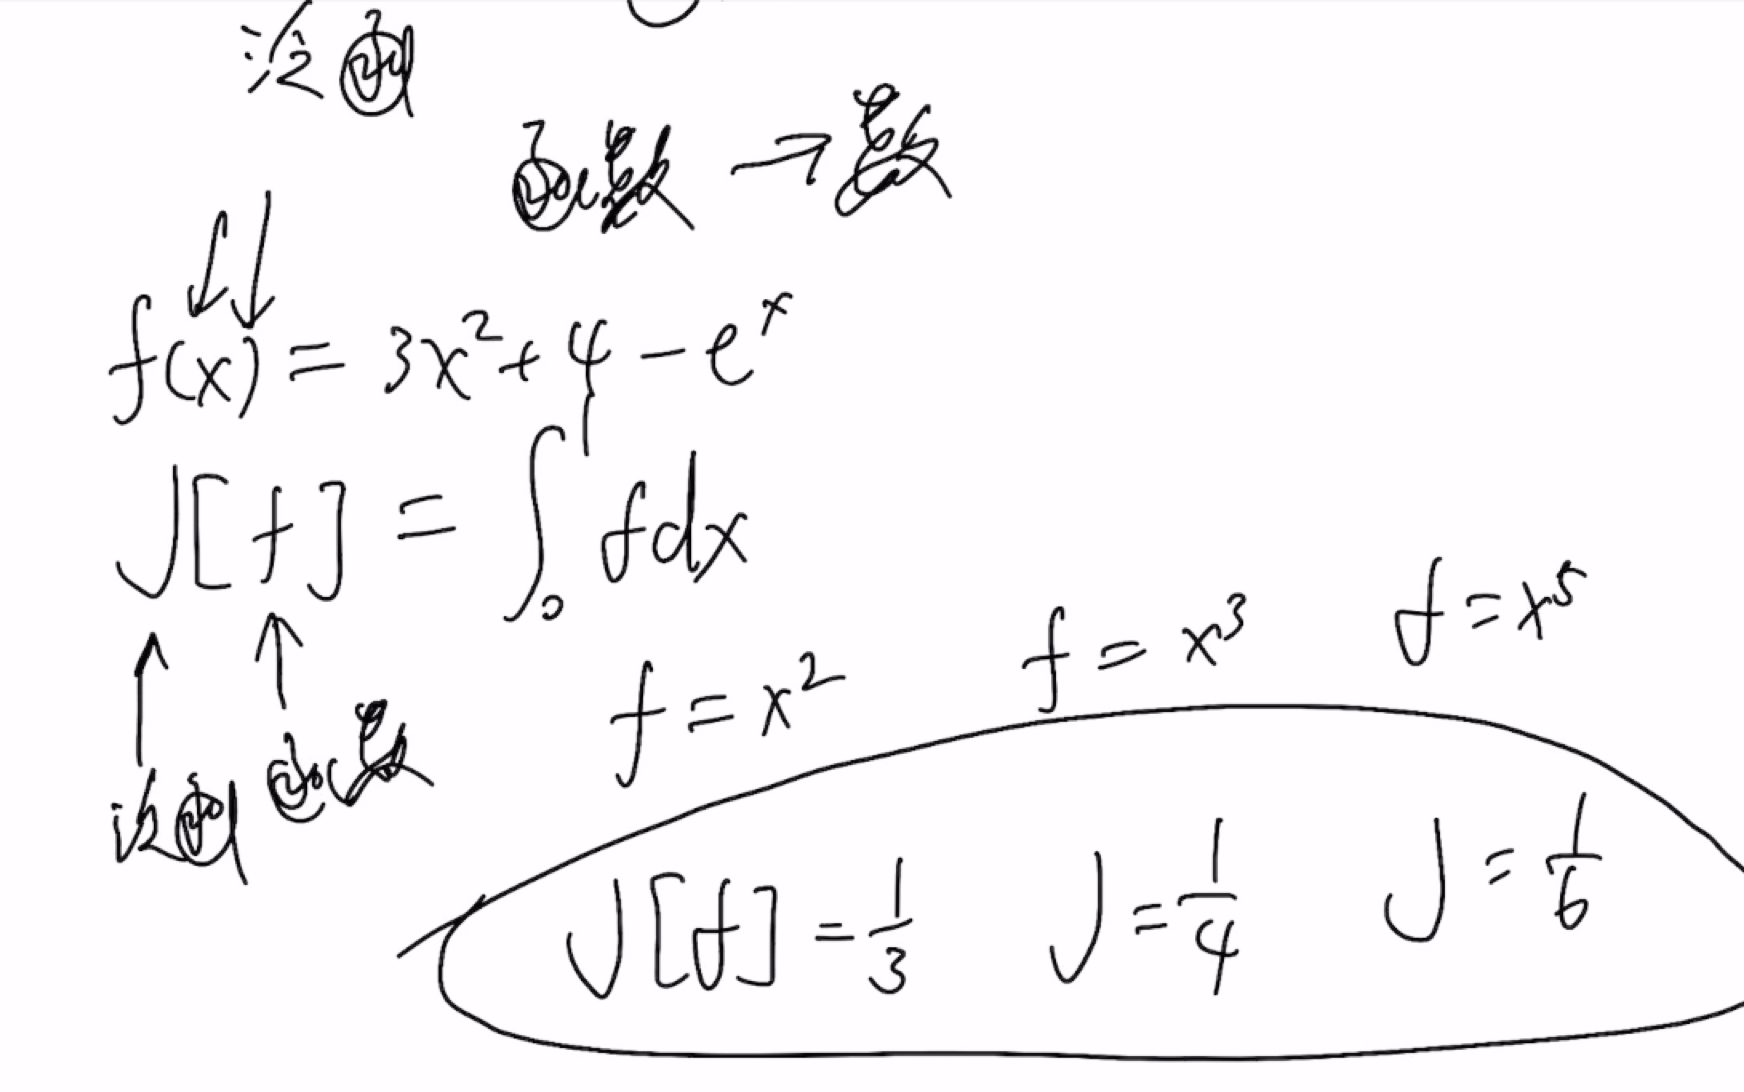 泛函
函数 → 数
f(x) = 3x² + 4 - eˣ
J[f] = ∫₀¹ f dx
泛函 函数
f = x² f = x³ f = x⁵
J[f] = 1/3 J = 1/4 J = 1/6